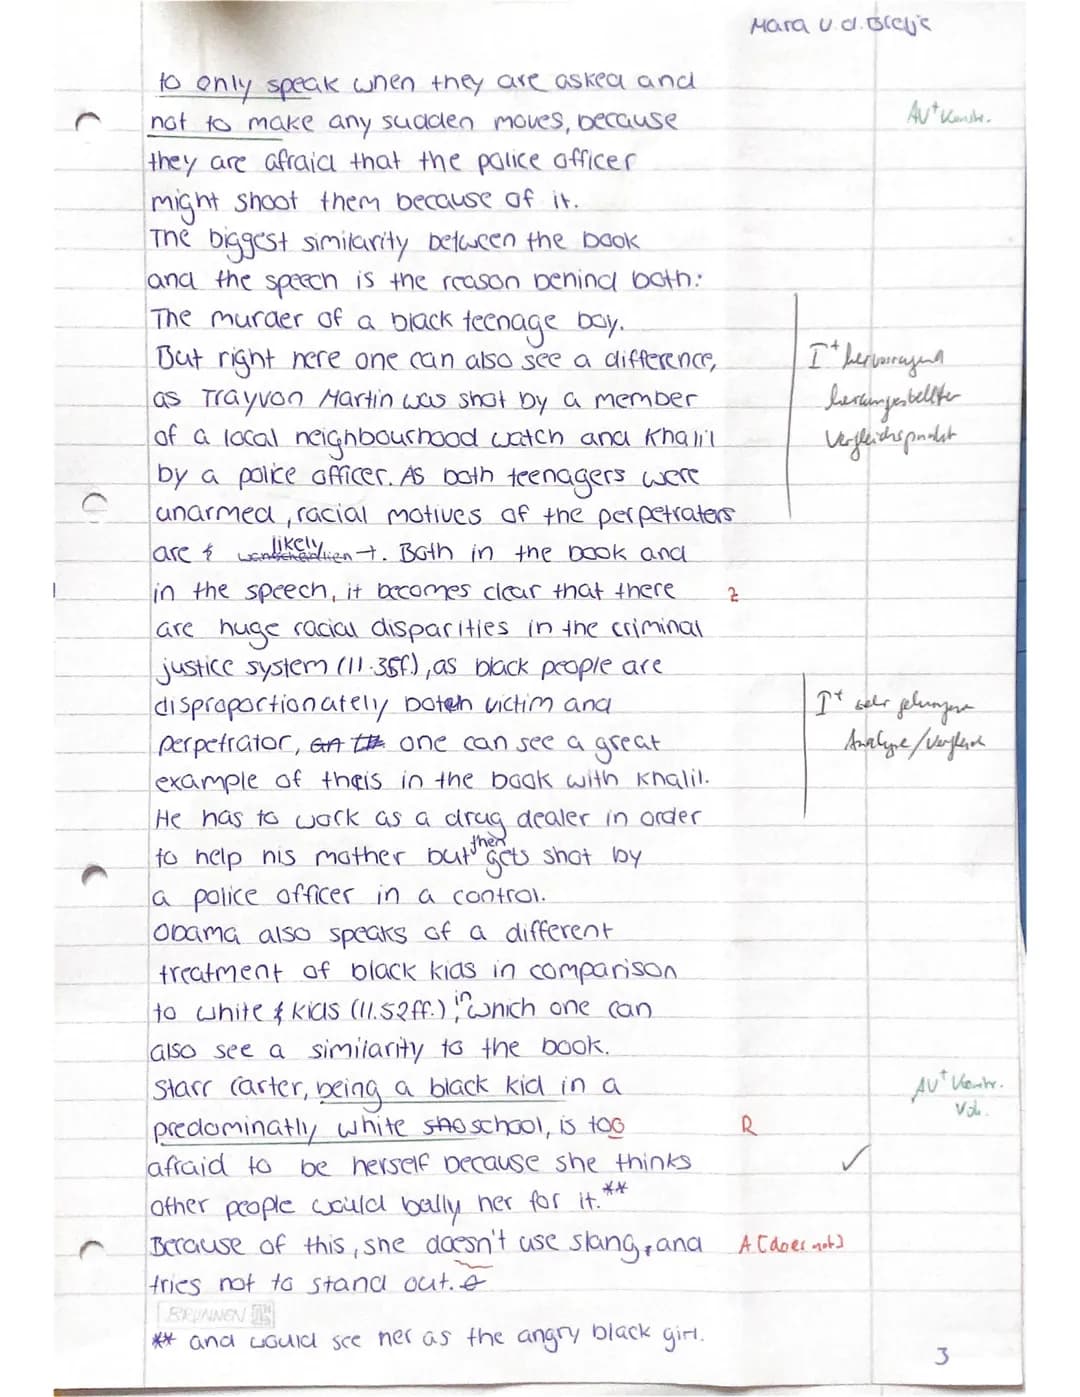 Mara v.d.
to only speak when they are asked and
not to make any sudden moves, because
AV+ Konstr.
they are afraid that the police officer
might shoot them because of it.
The biggest similarity between the book
and the speech is the reason behind both:
The murder of a black teenage boy.
But right here one can also see a difference,
I+ hervorragend
as Trayvon Martin was shot by a member
herausgestellter
of a local neighbourhood watch and Khalil
Vergleichspunkt
by a police officer. As both teenagers were
unarmed, racial motives of the perpetraters
are likely. Both in the book and
in the speech, it becomes clear that there
Z
are huge racial disparities in the criminal
justice system (ll. 35f.), as black people are
disproportionately both victim and
I+ sehr gelungene
perpetrator, one can see a great
Analyse/Vergleich
example of this in the book with Khalil.
He has to work as a drug dealer in order
to help his mother but then gets shot by
a police officer in a control.
Obama also speaks of a different
treatment of black kids in comparison
to white kids (ll. 52ff.), in which one can
also see a similarity to the book.
Starr Carter, being a black kid in a
AV+ Konstr.
Vok.
predominatly white school, is too
R
afraid to be herself because she thinks
✓
other people would bully her for it.**
Because of this, she doesn't use slang, and
A [does not]
tries not to stand out.
BRUNNEN
** and would see her as the angry black girl.
3